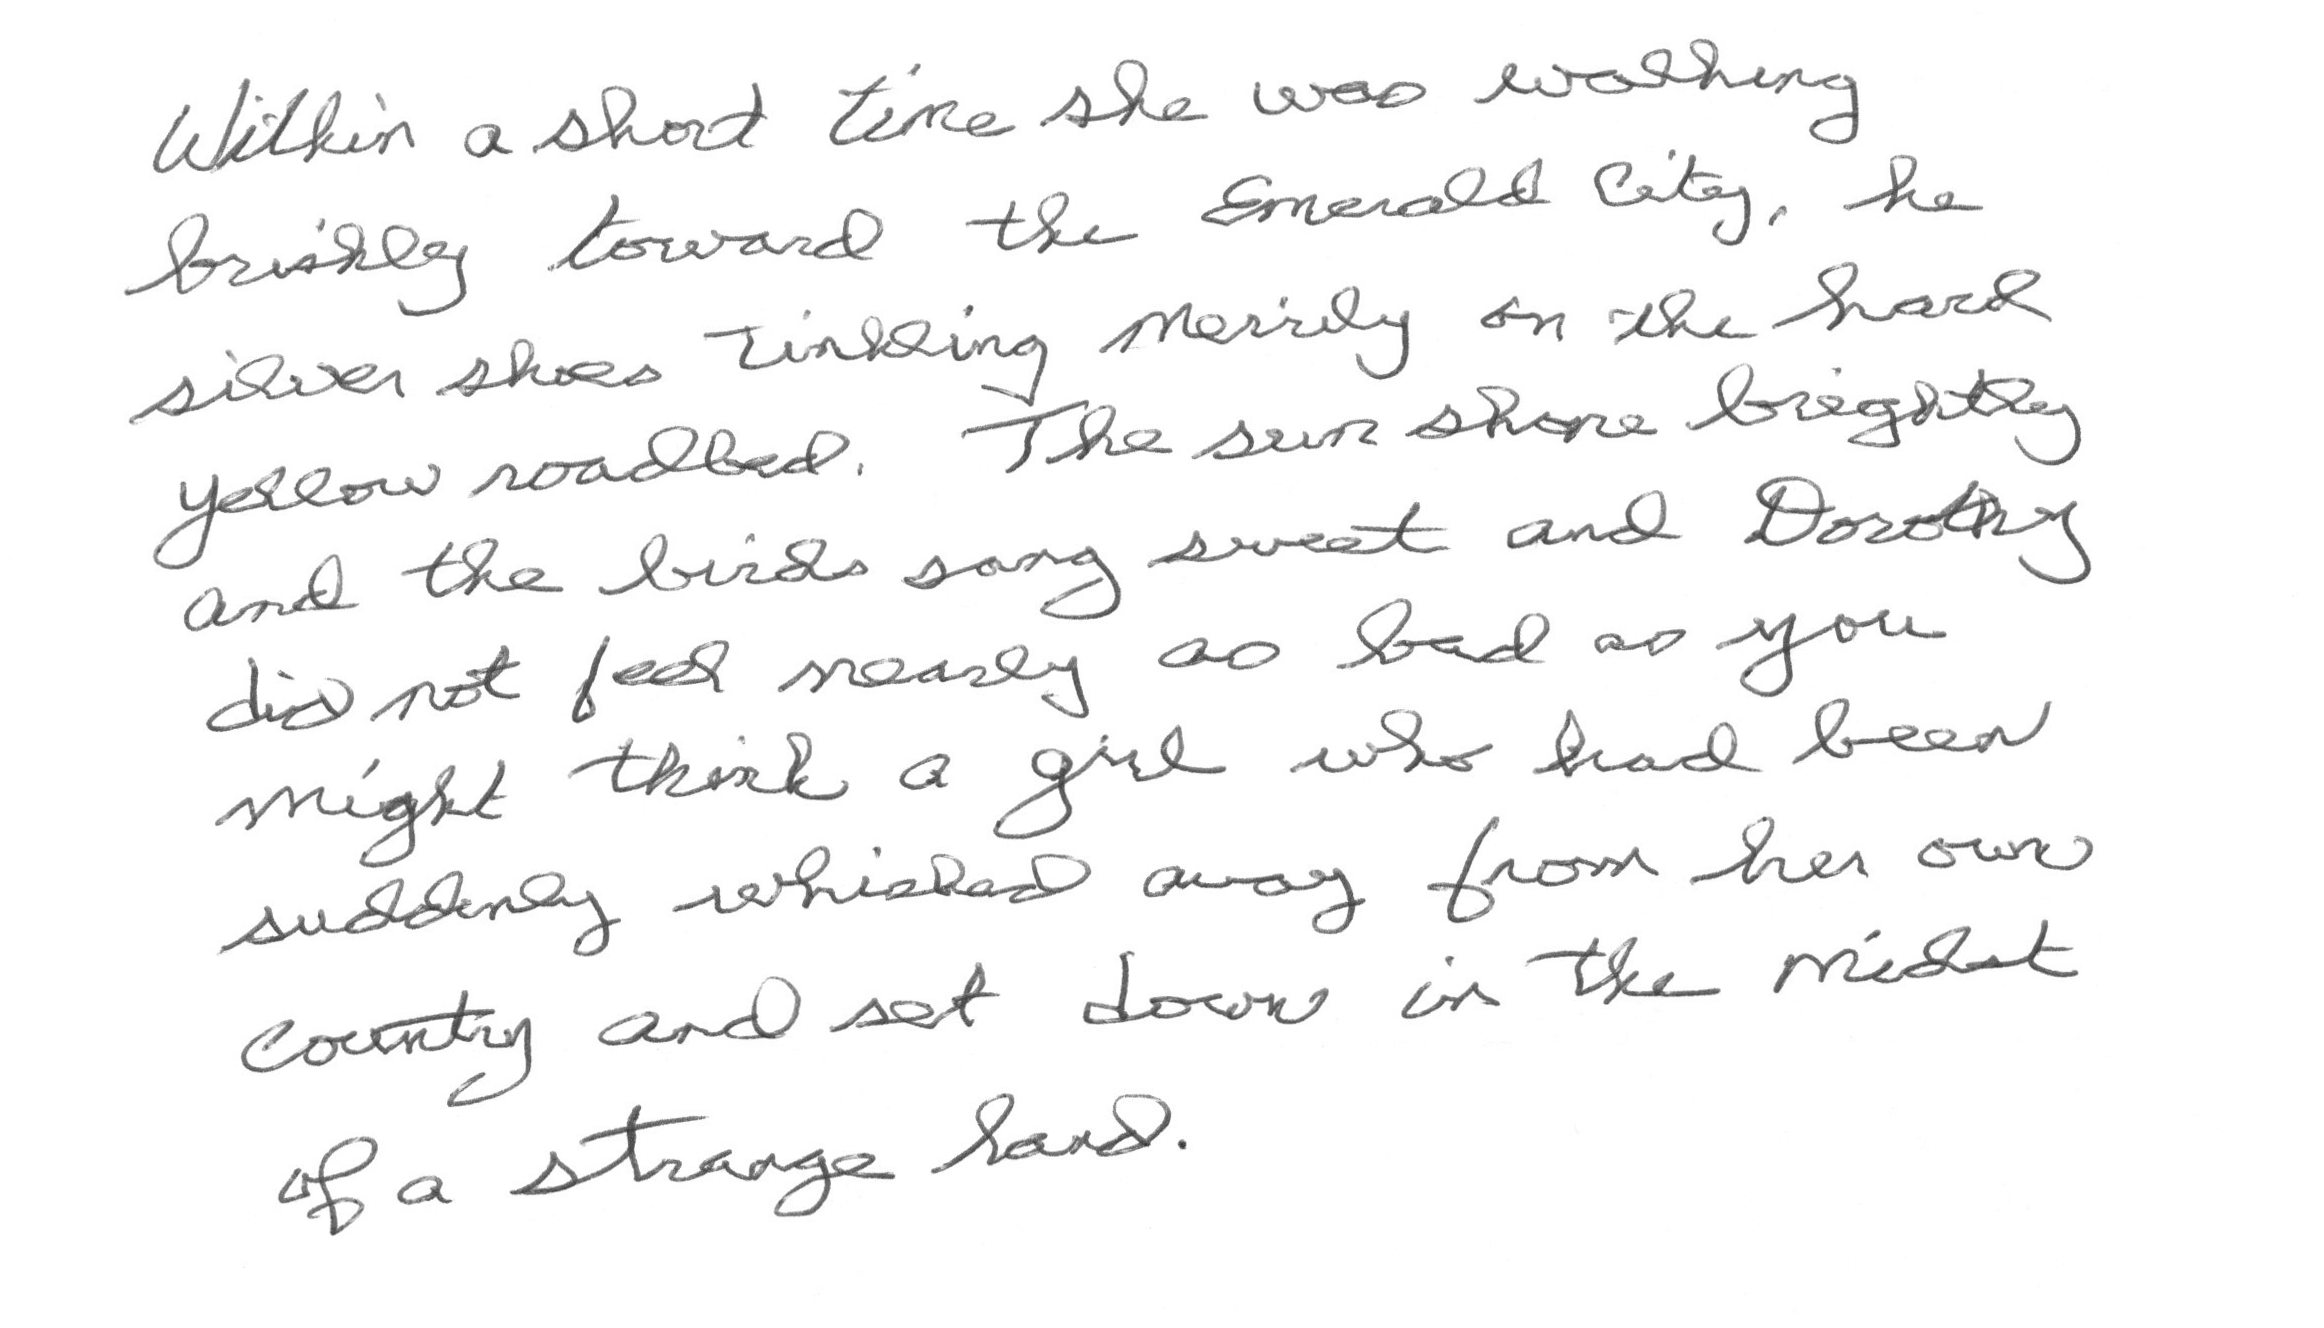 Within a short time she was walking
briskly toward the Emerald City, he
silver shoes tinkling merrily on the hard
yellow roadbed. The sun shone brightly
and the birds sang sweet and Dorothy
did not feel nearly as bad as you
might think a girl who had been
suddenly whisked away from her own
country and set down in the midst
of a strange land.